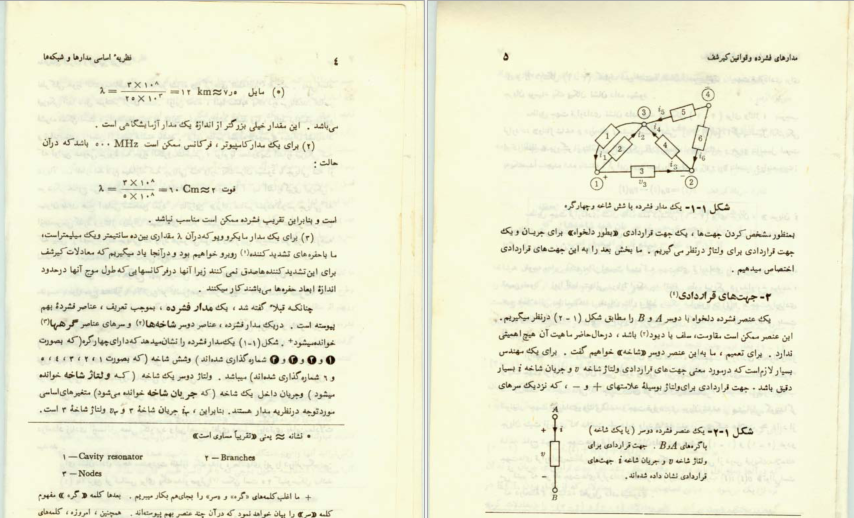 ٤
نظریه' اساسی مدارها و شبکه‌ها
λ = ٣×١٠^٨ / ٢٥×١٠^٣ = ١٢ km ≈ ٧٫٥ مایل (*)
می‌باشد . این مقدار خیلی بزرگتر از اندازهٔ یک مدار آزمایشگاهی است .
(٢) برای یک مدار کامپیوتر ، فرکانس ممکن است ٥٠٠ MHz باشد که در آن
حالت :
λ = ٣×١٠^٨ / ٥×١٠^٨ = ٦٠ Cm ≈ ٢ فوت
است و بنابراین تقریب فشرده ممکن است مناسب نباشد .
(٣) برای یک مدار مایکروویو که در آن λ مقداری بین ده سانتیمتر و یک میلیمتر است،
ما با حفره‌های تشدید کننده(١) روبرو خواهیم بود و در آنجا یاد میگیریم که معادلات کیرشف
برای این تشدید کننده‌ها صدق نمی کنند زیرا آنها در فرکانسهایی که طول موج آنها در حدود
اندازهٔ ابعاد حفره‌ها می‌باشند کار میکنند .
چنانکه قبلاً گفته شد ، یک مدار فشرده ، بموجب تعریف ، عناصر فشردهٔ بهم
پیوسته است . در یک مدار فشرده ، عناصر دوسر شاخه‌ها(٢) و سرهای عناصر گره‌ها(٣)
خوانده میشود+ . شکل (١-١) یک مدار فشرده را نشان میدهد که دارای چهار گره (که بصورت
① و ② و ③ و ④ شماره گذاری شده‌اند) و شش شاخه (که بصورت ١ ، ٢ ، ٣ ، ٤ ، ٥
و ٦ شماره گذاری شده‌اند) میباشد . ولتاژ دوسر یک شاخه (که ولتاژ شاخه خوانده
میشود) و جریان داخل یک شاخه (که جریان شاخه خوانده می‌شود) متغیرهای اساسی
مورد توجه در نظریه مدار هستند. بنابراین ، i₃ جریان شاخهٔ ٣ و v₃ ولتاژ شاخهٔ ٣ است .
* نشانه ≈ یعنی «تقریباً مساوی است»
١ — Cavity resonator ٢ — Branches
٣ — Nodes
+ ما اغلب کلمه‌های «گره» و «سر» را بجای هم بکار میبریم . بعدها کلمه «گره» مفهوم
کلمه «سر» را بیان خواهد نمود که در آن چند عنصر بهم پیوسته‌اند . همچنین ، امروزه ، کلمه‌های
٥
مدارهای فشرده و قوانین کیرشف
④
③ i₅ 5
1 i₂ i₄ 6
2 4
i₁ i₆
+ 3 i₃ −
① v₃ ②
شکل ١-١- یک مدار فشرده با شش شاخه و چهار گره
بمنظور مشخص کردن جهت‌ها ، یک جهت قراردادی «بطور دلخواه» برای جریان و یک
جهت قراردادی برای ولتاژ در نظر می گیریم . ما بخش بعد را به این جهت‌های قراردادی
اختصاص میدهیم .
٢- جهت‌های قراردادی(٤)
یک عنصر فشرده دلخواه با دوسر A و B را مطابق شکل (١-٢) در نظر میگیریم.
این عنصر ممکن است مقاومت، سلف یا دیود(٢) باشد ، در حال حاضر ماهیت آن هیچ اهمیتی
ندارد . برای تعمیم ، ما به این عنصر دوسر «شاخه» خواهیم گفت . برای یک مهندس
بسیار لازم است که در مورد معنی جهت‌های قراردادی ولتاژ شاخه v و جریان شاخه i بسیار
دقیق باشد . جهت قراردادی برای ولتاژ بوسیلهٔ علامتهای + و − ، که نزدیک سرهای
A
+ i
v
−
B
شکل ١-٢- یک عنصر فشرده دوسر (یا یک شاخه)
با گره‌های A و B . جهت قراردادی برای
ولتاژ شاخه v و جریان شاخه i جهت‌های
قراردادی نشان داده شده‌اند.